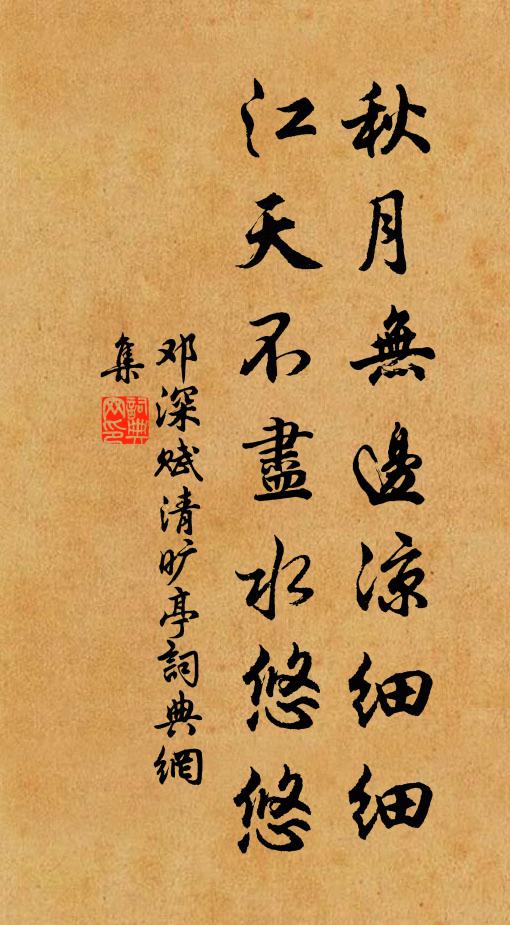 秋月無邊涼細細
江天不盡水悠悠
邓深赋清旷亭詞典網
集
詞典網印